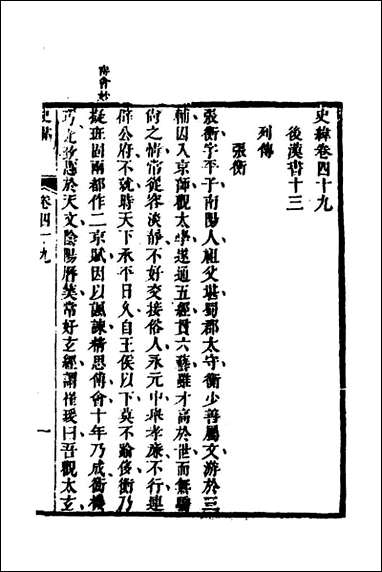 史緯卷四十九
後漢書十三
列傳
張衡
張衡字平子南陽人祖父堪蜀郡太守衡少善屬文游於三
輔因入京師觀太學遂通五經貫六藝雖才高於世而無驕
尙之情常從容淡靜不好交接俗人永元中舉孝廉不行連
辟公府不就時天下承平日久自王侯以下莫不踰侈衡乃
擬班固兩都作二京賦因以諷諫精思傅會十年乃成衡機
巧尤致思於天文陰陽曆算常好玄經謂崔瑗曰吾觀太玄
傅會妙
史緯
卷四十九
一